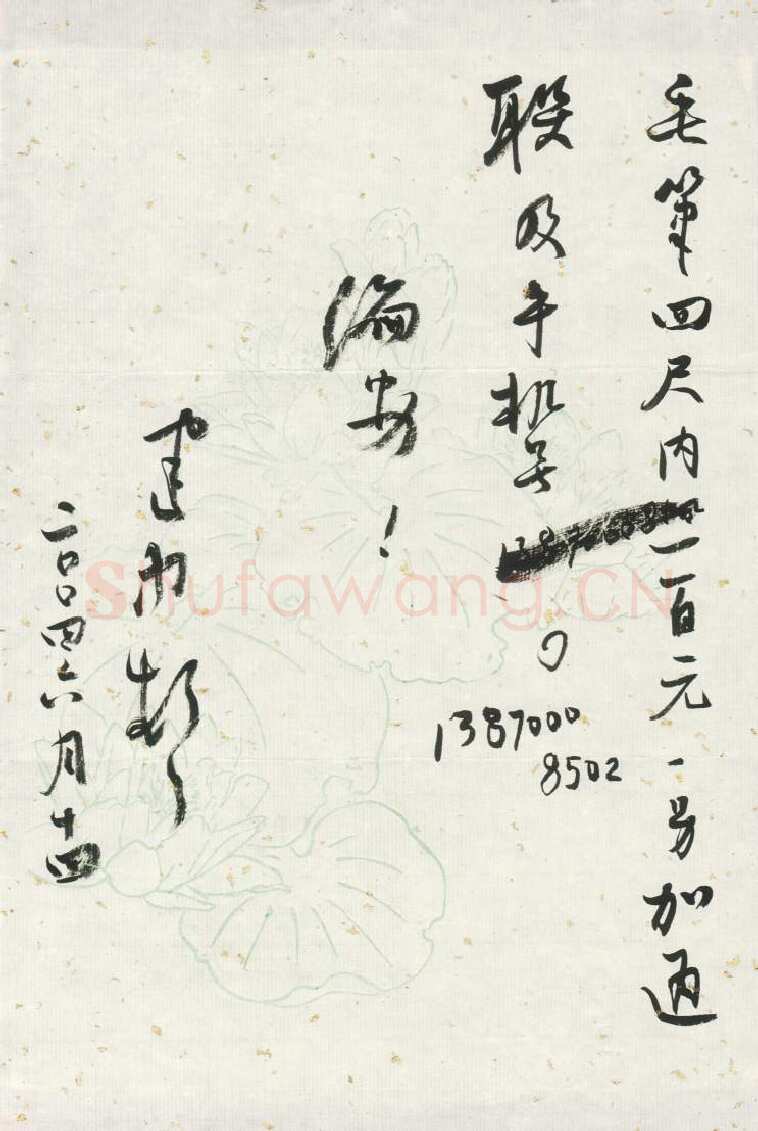 毛笔四尺内一百元一号加通
联及手机号
13870000
8502
编安!
建
二〇〇四六月十四
Shufawang.CN